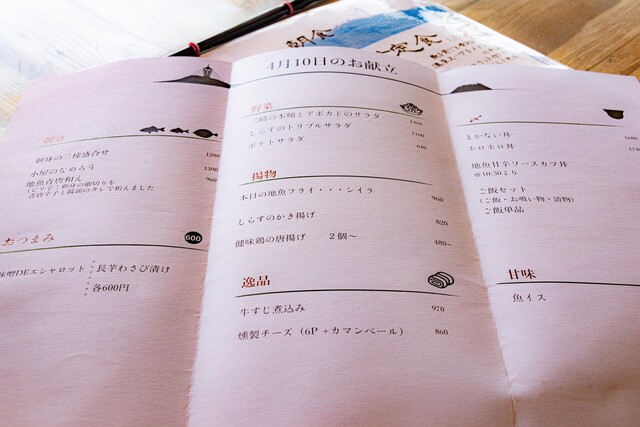 朝食
定食
4月10日のお献立
刺身
刺身の三種盛合せ 1280
小屋のなめろう 1390
地魚吉唐和え 960
(ピリ辛!刺身の細切りを
吉唐辛子と醤油のタレで和えました
おつまみ 600
味噌DEエシャロット
長芋わさび漬け
各600円
野菜
三崎の本鮪とアボカドのサラダ 1460
しらすのトリプルサラダ 1160
ポテトサラダ 640
揚物
本日の地魚フライ・・・シイラ 960
しらすのかき揚げ 820
健味鶏の唐揚げ 2個〜 480~
逸品
牛すじ煮込み 970
燻製チーズ(6P+カマンベール) 860
〆
まかない丼 1680
ホロホロ丼
地魚甘辛ソースカツ丼
※10:30より
ご飯セット
(ご飯・お吸い物・漬物)
ご飯単品
甘味
魚イス